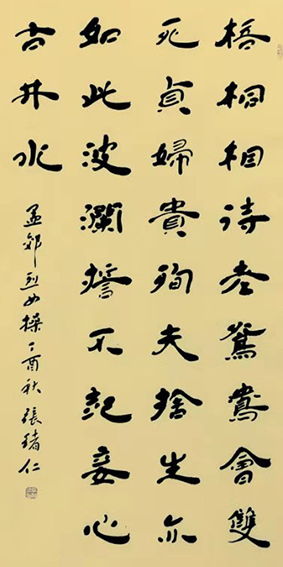 梧桐相待老鴛鴦會雙
死貞婦貴殉夫捨生亦
如此波瀾誓不起妾心
古井水
孟郊烈女操丁酉秋張仁